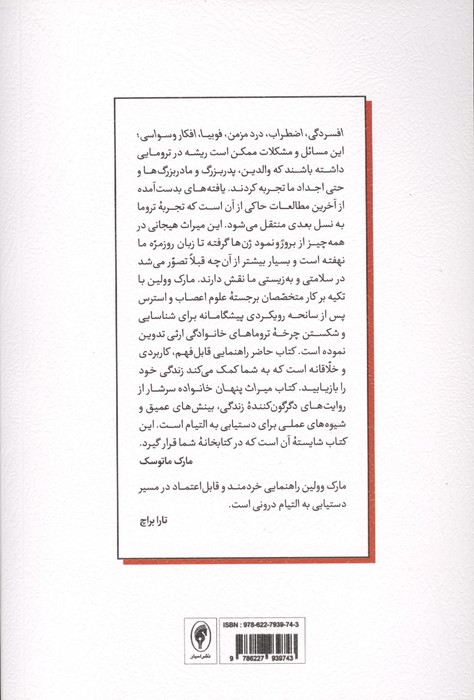 افسردگی، اضطراب، درد مزمن، فوبیا، افکار وسواسی؛
این مسائل و مشکلات ممکن است ریشه در ترومایی
داشته باشند که والدین، پدربزرگ و مادربزرگ‌ها و
حتی اجداد ما تجربه کردند. یافته‌های بدست‌آمده
از آخرین مطالعات حاکی از آن است که تجربهٔ تروما
به نسل بعدی منتقل می‌شود. این میراث هیجانی در
همه‌چیز از بروزونمود ژن‌ها گرفته تا زبان روزمرّه ما
نهفته است و بسیار بیشتر از آن‌چه قبلاً تصوّر می‌شد
در سلامتی و به‌زیستی ما نقش دارند. مارک وولین با
تکیه بر کار متخصّصان برجستهٔ علوم اعصاب و استرس
پس از سانحه رویکردی پیشگامانه برای شناسایی
و شکستن چرخهٔ تروماهای خانوادگی ارثی تدوین
نموده است. کتاب حاضر راهنمایی قابل‌فهم، کاربردی
و خلّاقانه است که به شما کمک می‌کند زندگی خود
را بازیابید. کتاب میراث پنهان خانواده سرشار از
روایت‌های دگرگون‌کنندهٔ زندگی، بینش‌های عمیق و
شیوه‌های عملی برای دستیابی به التیام است. این
کتاب شایستهٔ آن است که در کتابخانهٔ شما قرار گیرد.
مارک ماتوسک
مارک وولین راهنمایی خردمند و قابل‌اعتماد در مسیر
دستیابی به التیام درونی است.
تارا براچ
نشر اسبار
ISBN : 978-622-7939-74-3
9 786227 939743